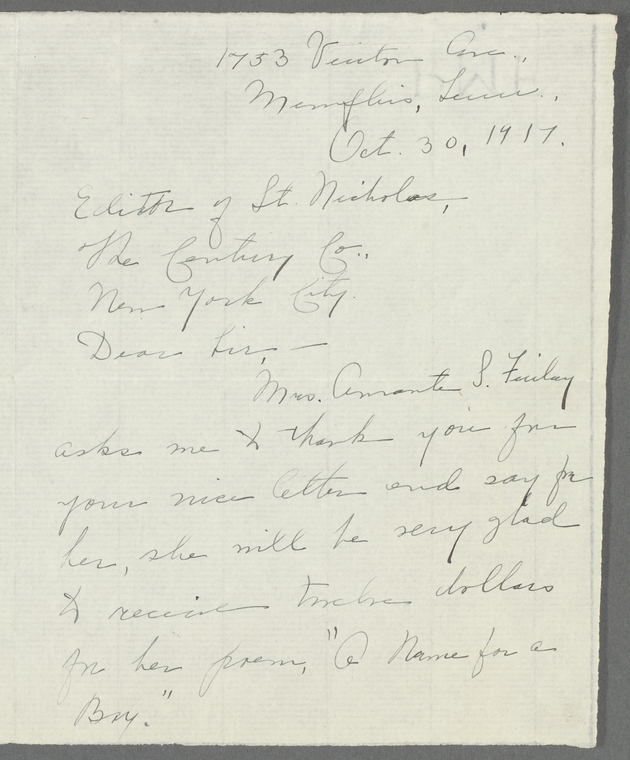 1753 Vinton Ave.,
Memphis, Tenn.,
Oct. 30, 1917.
Editor of St. Nicholas,
The Century Co.,
New York City.
Dear Sir,—
Mrs. S. Finlay
asks me to thank you for
your nice letter and say for
her, she will be very glad
to receive twelve dollars
for her poem, "A Name for a
Boy."